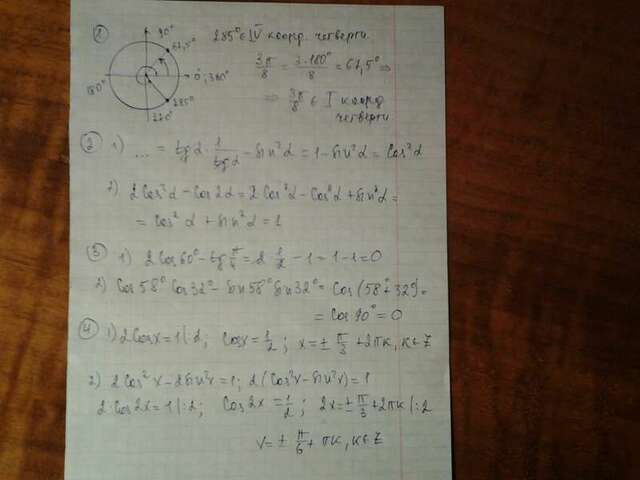 1
90°
67,5°
180°
0°, 360°
285°
270°
285° ∈ IV коорд. четверти
3π/8 = 3·180°/8 = 67,5° ⇒
⇒ 3π/8 ∈ I коорд.
четверти
2 1) ... = tg α · 1/tg α - sin²α = 1 - sin²α = cos²α
2) 2cos²α - cos2α = 2cos²α - cos²α + sin²α =
= cos²α + sin²α = 1
3 1) 2cos60° - tg π/4 = 2·1/2 - 1 = 1 - 1 = 0
2) cos58° cos32° - sin58° sin32° = cos(58° + 32°) =
= cos90° = 0
4 1) 2cosx = 1 |:2; cosx = 1/2; x = ± π/3 + 2πk, k ∈ Z
2) 2cos²x - 2sin²x = 1; 2(cos²x - sin²x) = 1
2·cos2x = 1 |:2; cos2x = 1/2; 2x = ± π/3 + 2πk |:2
x = ± π/6 + πk, k ∈ Z